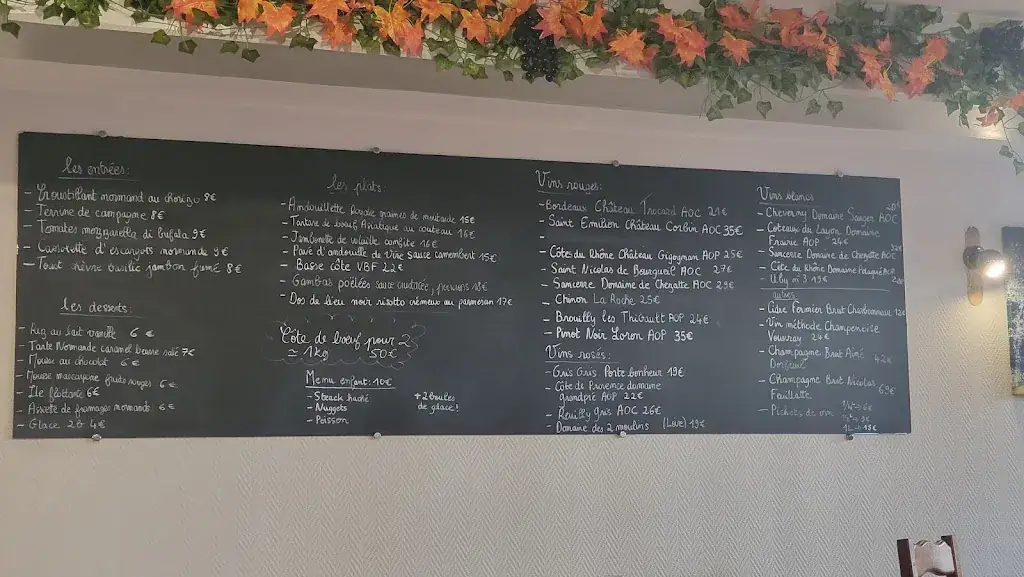 les entrées:
- Croustillant normand au chorizo 8€
- Terrine de campagne 8€
- Tomates mozzarella di bufala 9€
- Cassolette d'escargots normande 9€
- Toast chèvre basilic jambon fumé 8€
les desserts:
- Riz au lait vanille 6€
- Tarte Normande caramel beurre salé 7€
- Mousse au chocolat 6€
- Mousse mascarpone fruits rouges 6€
- Ile flottante 6€
- Assiette de fromages normands 6€
- Glace 2b 4€
les plats:
- Andouillette Royale graines de moutarde 15€
- Tartare de bœuf Asiatique au couteau 16€
- Jambonette de volaille confite 16€
- Pavé d'andouille de Vire sauce camembert 15€
- Basse côte VBF 22€
- Gambas poêlées sauce crustacés, poivrons 18€
- Dos de lieu noir risotto crémeux au parmesan 17€
Côte de bœuf pour 2
≃ 1kg 50€
Menu enfant: 10€
- Steack haché
- Nuggets
- Poisson
+ 2 boules
de glace!
Vins rouges:
- Bordeaux Château Trocard AOC 21€
- Saint Emilion Château Corbin AOC 35€
-
- Côtes du Rhône Château Gigognan AOP 25€
- Saint Nicolas de Bourgueil AOC 27€
- Sancerre Domaine de Cherzatte AOC 29€
- Chinon La Roche 25€
- Brouilly les Thibault AOP 24€
- Pinot Noir Loron AOP 35€
Vins rosés:
- Gris Gris Porte bonheur 19€
- Côte de Provence domaine
grandpré AOP 22€
- Reuilly gris AOC 26€
- Domaine des 2 moulins (Loire) 19€
Vins blancs
- Cheverny Domaine Sauger AOC
- Coteaux du Layon Domaine
AOP 24€
- Sancerre Domaine de AOC 32€
- Côte du Rhône Domaine AOP
- Uby n°3 19€
autres
- Cidre Fermier Brut 12€
- Vin méthode Champenoise
Vouvray 24€
- Champagne Brut Aimé 42€
- Champagne Brut Nicolas
Feuillatte 69€
- Pichets de vin 1/4 → 6€
1/2 → 9€
1L → 18€